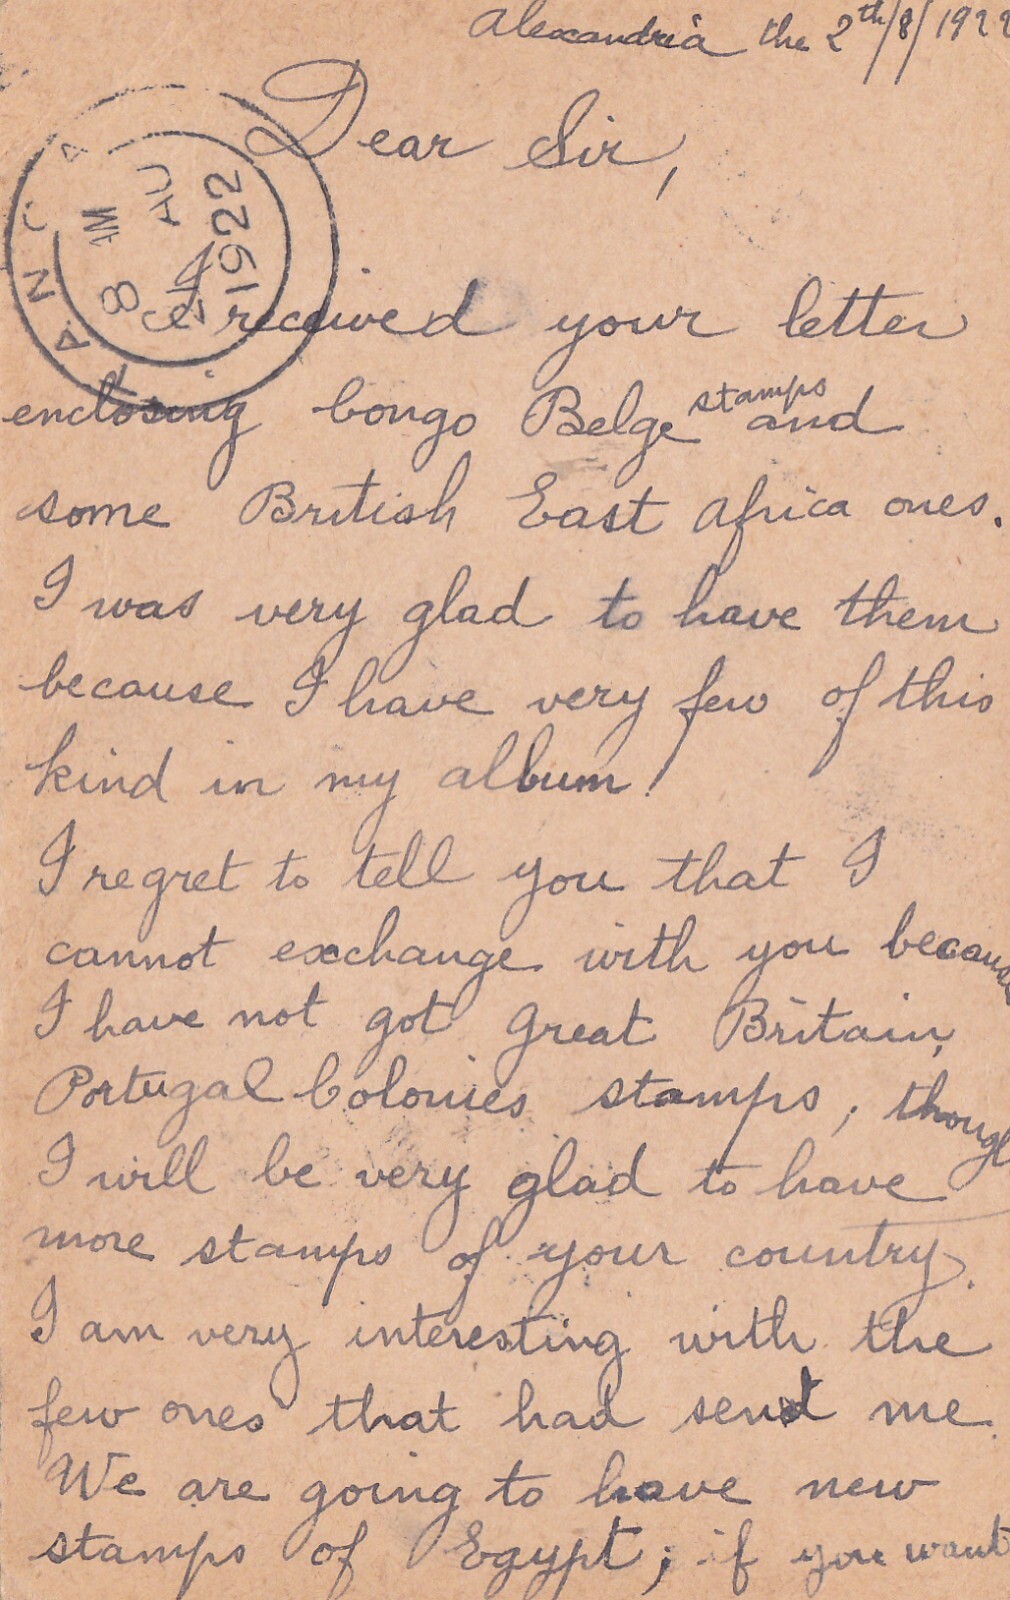 Alexandria the 2th/8/1922
Dear Sir,
I received your letter
enclosing Congo Belge stamps and
some British East Africa ones.
I was very glad to have them
because I have very few of this
kind in my album!
I regret to tell you that I
cannot exchange with you because
I have not got Great Britain,
Portugal Colonies stamps, though
I will be very glad to have
more stamps of your country.
I am very interesting with the
few ones that had send me.
We are going to have new
stamps of Egypt; if you want
8 AM
AU
1922